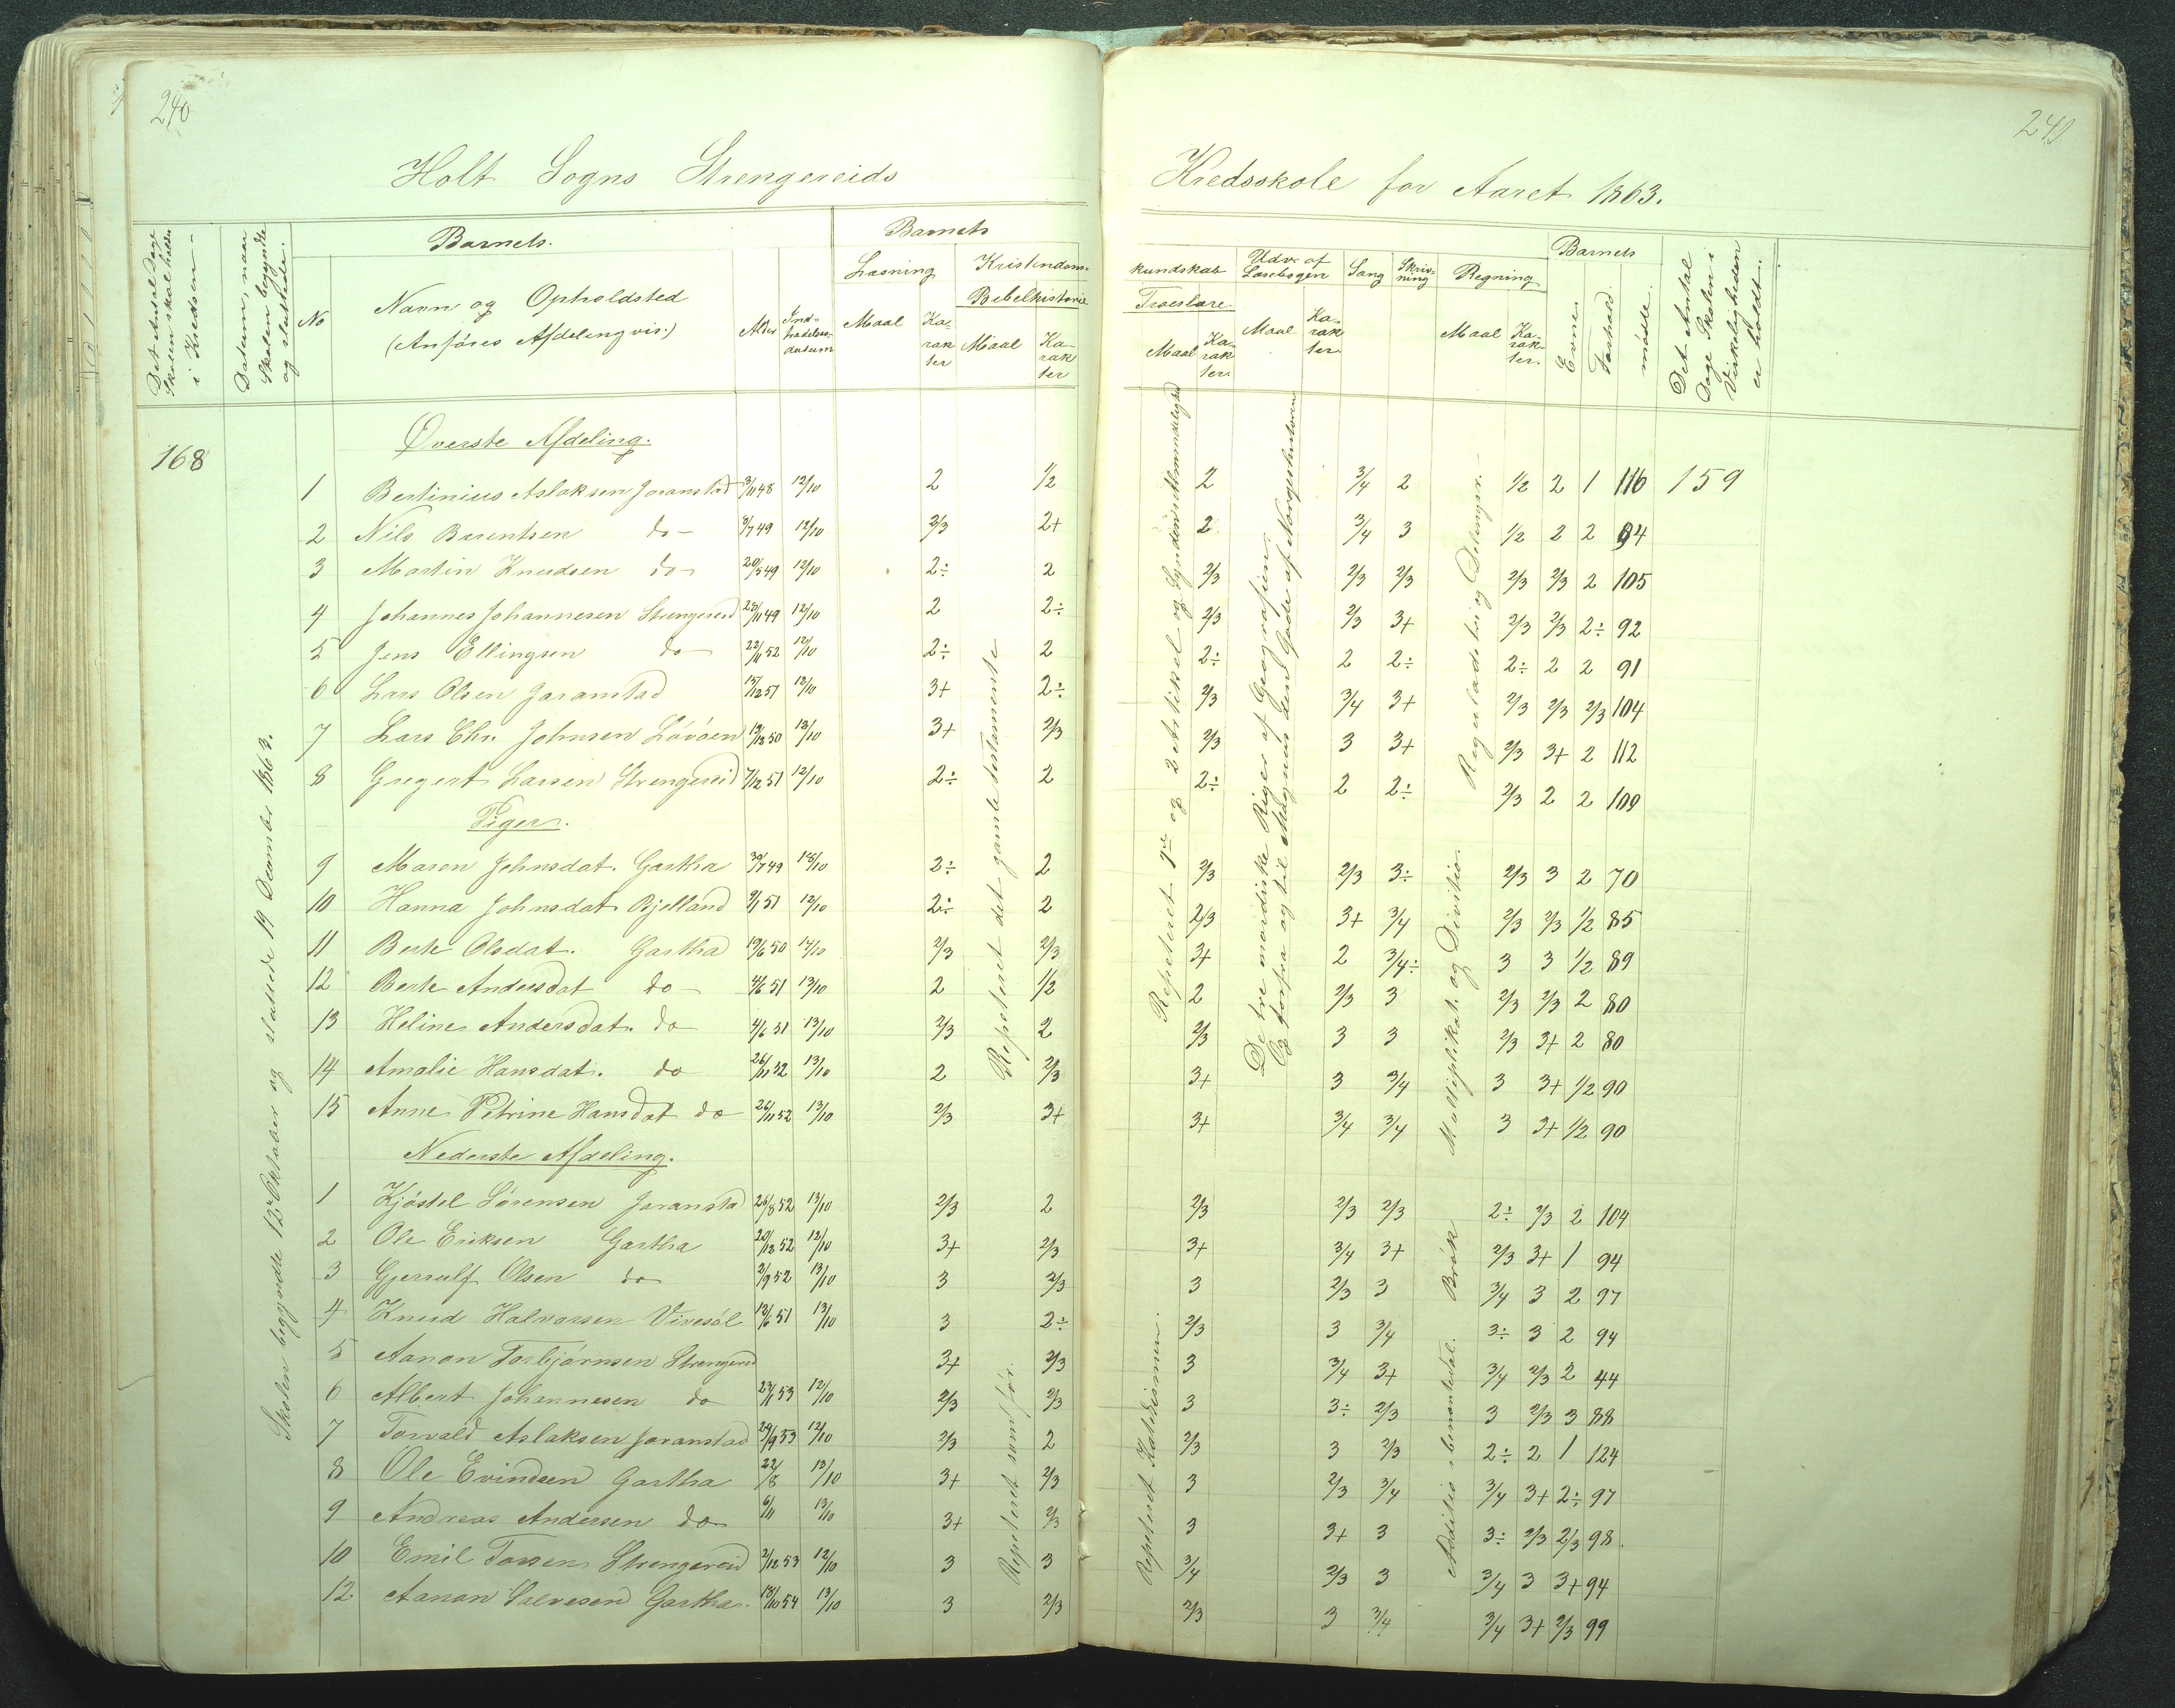 240
Holt Sogns Strengereids
Det Antal Dage Skolen skal holdes i Kredsen
Datum, naar Skolen begyndte og sluttede.
Barnets.
No
Navn og Opholdsted
(Anføres Afdelingvis.)
Alder
Indtrædelses-datum
Barnets
Læsning
Maal
Ka-rak ter
Kristendoms-
Bibelhistorie
Maal
Ka-rak ter
168
Skolen begyndte 12te Oktober og sluttede 19 December 1863.
Øverste Afdeling.
1 Bertinius Aslaksen Joranstad 3/11 48 12/10 2 1/2
2 Nils Barentsen do - 8/7 49 12/10 2/3 2+
3 Martin Knudsen do - 20/5 49 12/10 2÷ 2
4 Johannes Johannesen Strengereid 23/11 49 12/10 2 2÷
5 Jens Ellingsen do - 22/11 52 12/10 2÷ 2
6 Lars Olsen Joranstad 15/12 51 12/10 3+ 2÷
7 Lars Chr. Johnsen Løvøen 19/12 50 13/10 3+ 2/3
8 Gregert Larsen Strengereid 7/12 51 12/10 2÷ 2
Piger.
9 Maren Johnsdat. Gartha 30/7 49 18/10 2÷ 2
10 Hanna Johnsdat. Bjelland 9/1 51 12/10 2÷ 2
11 Berte Olsdat. Gartha 19/6 50 14/10 2/3 2/3
12 Berte Andersdat do - 4/6 51 13/10 2 1/2
13 Heline Andersdat. do 4/6 51 13/10 2/3 2
14 Amalie Hansdat. do 26/11 52 13/10 2 2/3
15 Anne Petrine Hansdat do 26/11 52 13/10 2/3 3+
Repeteret det gamle testamente
Nederste Afdeling.
1 Kjøstel Sørensen Joranstad 26/8 52 13/10 2/3 2
2 Ole Eriksen Gartha 20/12 52 12/10 3+ 2/3
3 Gjerulf Olsen do 2/9 52 13/10 3 2/3
4 Knud Halvorsen Vivesøl 12/6 51 13/10 3 2÷
5 Aanon Torbjørnsen Strengereid 3+ 2/3
6 Albert Johannesen do 23/11 53 12/10 2/3 2/3
7 Torvald Aslaksen Joranstad 29/9 53 12/10 2/3 2
8 Ole Evindsen Gartha 22/8 13/10 3+ 2/3
9 Andreas Andersen do 6/11 13/10 3+ 2/3
10 Emil Torsen Strengereid 2/12 53 12/10 3 3
12 Aanon Salvesen Gartha. 18/10 54 13/10 3 2/3
Repeteret som før.
241
Kredsskole for Aaret 1863.
kundskab
Troeslære
Maal
Ka-rak ter.
Udv. af Læsebogen
Maal
Ka-rak ter.
Sang
Skriv-ning
Regning
Maal
Ka-rak-ter.
Barnets
Evner
Forhold.
mødte.
Det Antal Dage Skolen i Virkeligheden er holdt.
2 3/4 2 1/2 2 1 116 159
2 3/4 3 1/2 2 2 94
2/3 2/3 2/3 2/3 2/3 2 105
2/3 2/3 3+ 2/3 2/3 2÷ 92
2÷ 2 2÷ 2÷ 2 2 91
2/3 3/4 3+ 2/3 2/3 2/3 104
2/3 3 3+ 2/3 3+ 2 112
2÷ 2 2÷ 2/3 2 2 109
2/3 2/3 3÷ 2/3 3 2 70
2/3 3+ 3/4 2/3 2/3 1/2 85
3+ 2 3/4÷ 3 3 1/2 89
2 2/3 3 2/3 2/3 2 80
2/3 3 3 2/3 3+ 2 80
3+ 3 3/4 3 3+ 1/2 90
3+ 3/4 3/4 3 3+ 1/2 90
2/3 2/3 2/3 2÷ 2/3 2 104
3+ 3/4 3+ 2/3 3+ 1 94
3 2/3 3 3/4 3 2 97
2/3 3 3/4 3÷ 3 2 94
3 3/4 3+ 3/4 2/3 2 44
3 3÷ 2/3 3 2/3 3 88
2/3 3 2/3 2÷ 2 1 124
3 2/3 3/4 3/4 3+ 2÷ 97
3 3+ 3 3÷ 2/3 2/3 98.
3/4 2/3 3 3/4 3 3+ 94
2/3 3 3/4 3/4 3+ 2/3 99
Repeteret 1ste og 2 Artikel og Synden i Almindelighed
De tre nordiske Riger af Geografien.
Og forfra og til Magnus den Gode af Norgeshistorien
Reguladetri og Delingsr. -
Multiplikat. og Divisio.
Repeteret Katekismen.
Additio i benævntetal. Brøk